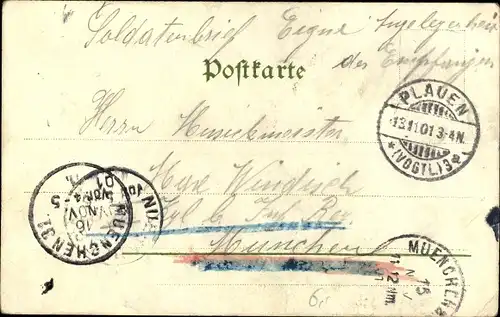 Soldatenbrief Eigne Angelegenheit
des Empfängers
Postkarte
PLAUEN
13.11.01 3-4N.
*(VOGTL.)3*
Herrn Musickmeister
Max Windisch
München
MUENCHEN 31.
16
NOV
4-5
01
MUENCHEN
15
NOV